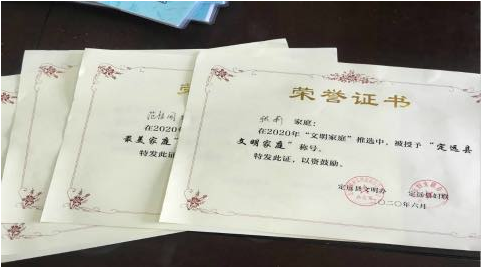 荣誉证书
张莉 家庭:
在2020年“文明家庭”推选中，被授予“定远县
文明家庭”称号。
特发此证，以资鼓励。
定远县文明办 定远县妇联
二〇二〇年六月
荣
在2020年
最美家庭”
特发此证